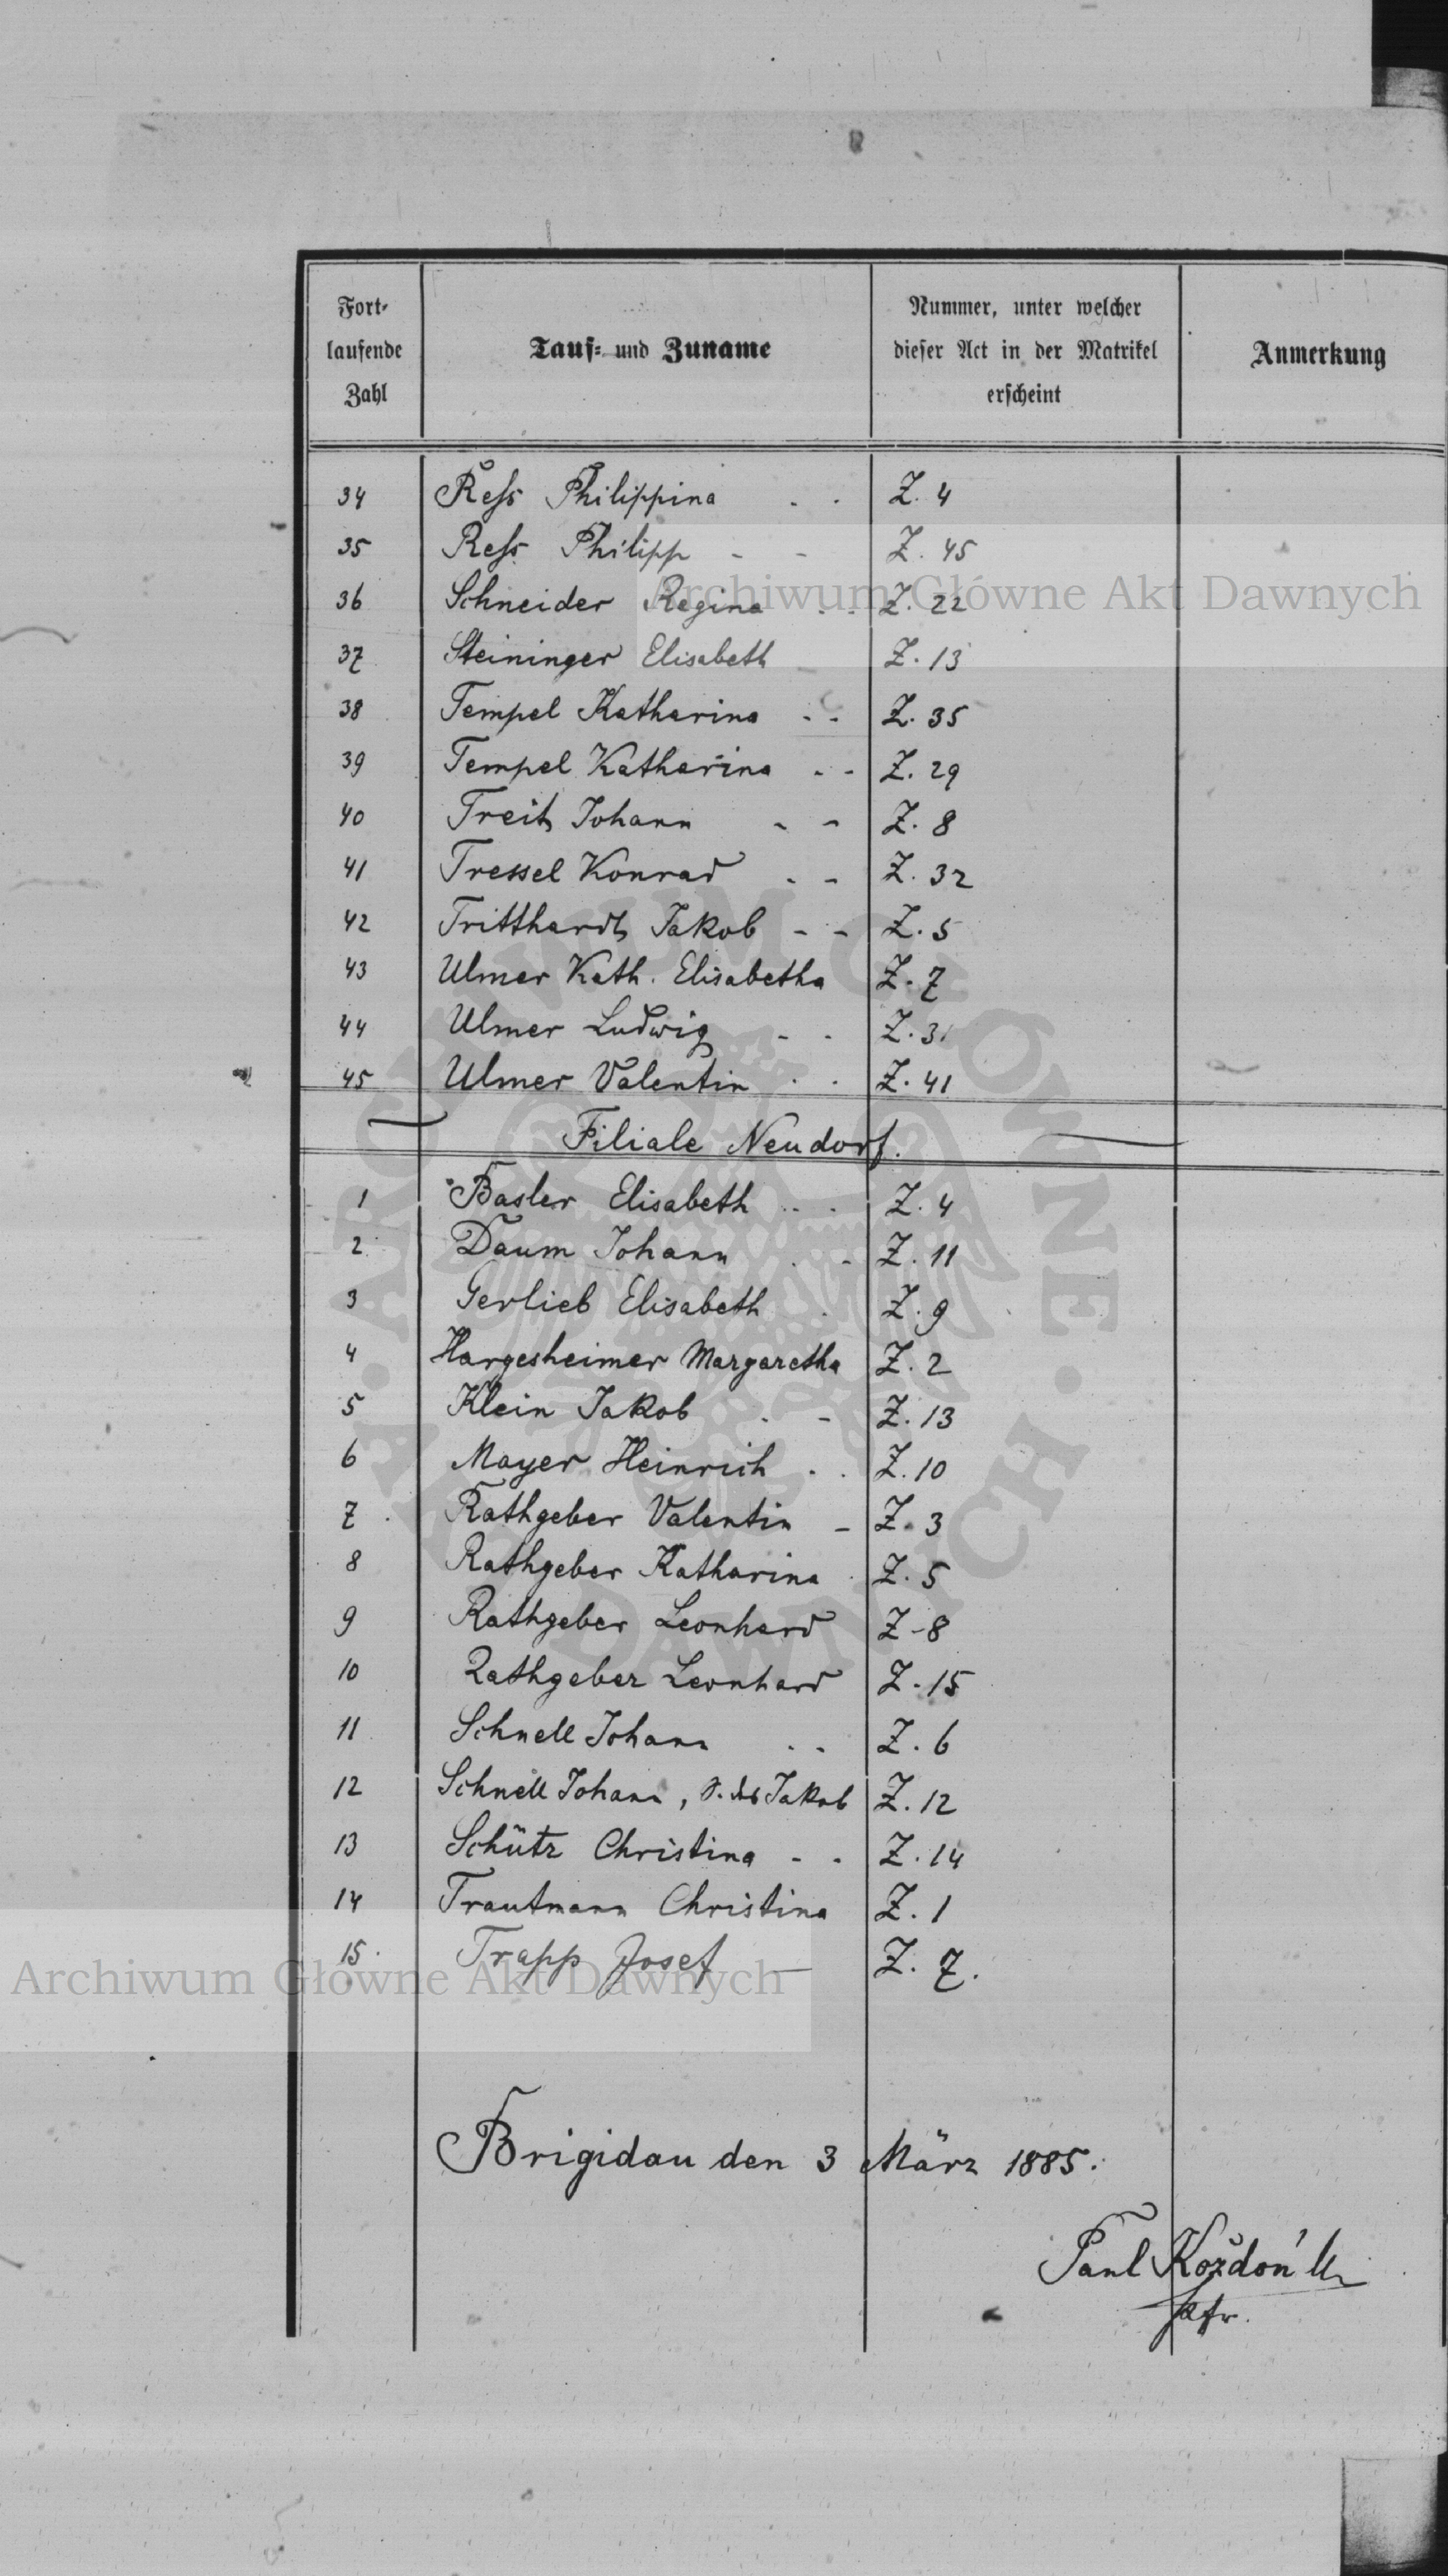 Fort-
laufende
Zahl
Tauf- und Zuname
Nummer, unter welcher
dieser Act in der Matrikel
erscheint
Anmerkung
34 Reſs Philippina - - Z. 4
35 Reſs Philipp - - Z. 45
36 Schneider Regina - - Z. 22
37 Steininger Elisabeth Z. 13
38 Tempel Katharina - - Z. 35
39 Tempel Katharina - - Z. 29
40 Treit Johann - - Z. 8
41 Tressel Konrad - - Z. 32
42 Tritthardt Jakob - - Z. 5
43 Ulmer Kath. Elisabetha Z. 7
44 Ulmer Ludwig - - Z. 31
45 Ulmer Valentin - - Z. 41
Filiale Neudorf.
1 Basler Elisabeth - - Z. 4
2 Daum Johann - - Z. 11
3 Gerlieb Elisabeth - Z. 9
4 Hargesheimer Margaretha Z. 2
5 Klein Jakob - - Z. 13
6 Mayer Heinrich - - Z. 10
7 Rathgeber Valentin - Z. 3
8 Rathgeber Katharina Z. 5
9 Rathgeber Leonhard Z. 8
10 Rathgeber Leonhard Z. 15
11 Schnell Johann - - Z. 6
12 Schnell Johann, S. des Jakob Z. 12
13 Schütz Christina - - Z. 14
14 Trautmann Christina Z. 1
15. Trapp Josef — Z. 7.
Brigidau den 3 März 1885.
Paul Koždoń
Pfr.
Archiwum Główne Akt Dawnych
Archiwum Główne Akt Dawnych
ARCHIWUM GŁÓWNE AKT DAWNYCH